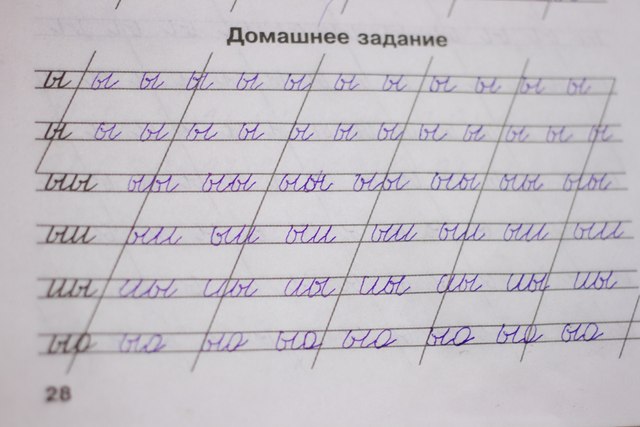 Домашнее задание
ы ы ы ы ы ы ы ы ы ы ы ы
ы ы ы ы ы ы ы ы ы ы ы ы ы
ыы ыы ыы ыы ыы ыы ыы ыы
ыи ыи ыи ыи ыи ыи ыи ыи
иы иы иы иы иы иы иы иы
ыо ыо ыо ыо ыо ыо ыо ыо
28